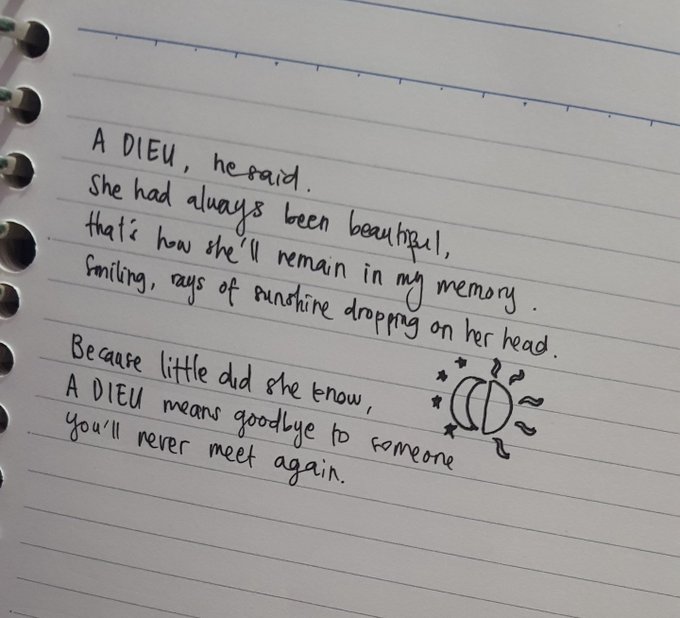 A DIEU, he said.
She had always been beautiful,
that's how she'll remain in my memory.
Smiling, rays of sunshine dropping on her head.
Because little did she know,
A DIEU means goodbye to someone
you'll never meet again.